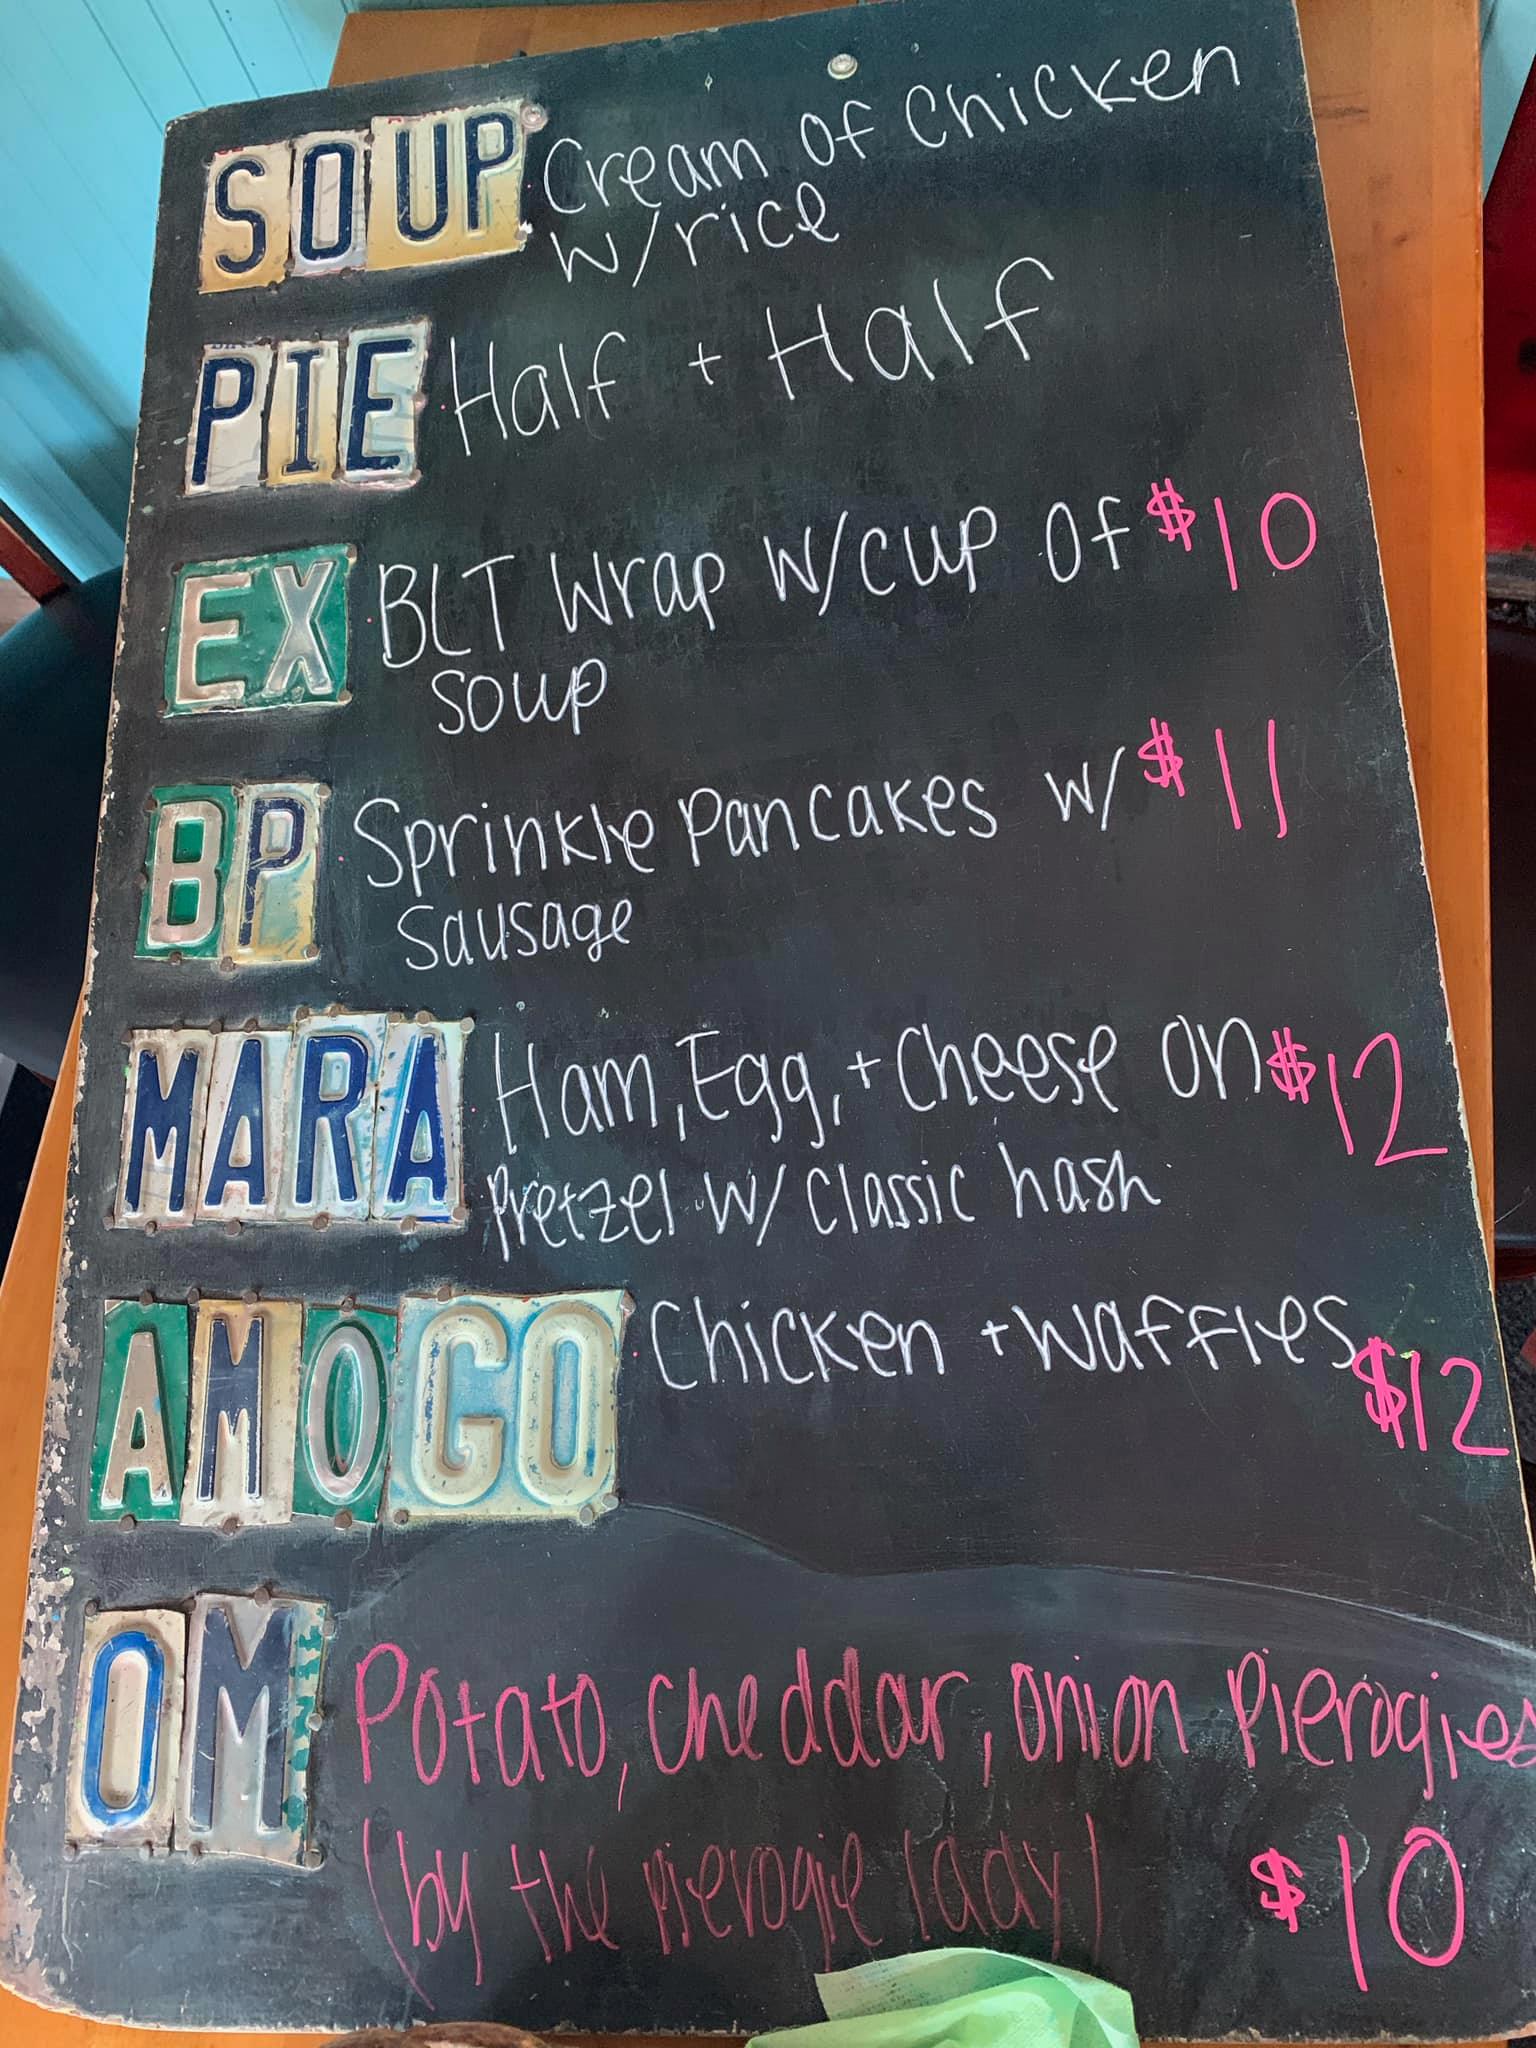 SOUP Cream of Chicken
w/rice
PIE Half + Half
EX BLT Wrap w/cup of $10
soup
BP Sprinkle Pancakes w/ $11
Sausage
MARA Ham, Egg, + Cheese on $12
Pretzel w/ Classic hash
AMOGO Chicken + Waffles $12
OM Potato, Cheddar, Onion Pierogies
(by the pierogie lady) $10